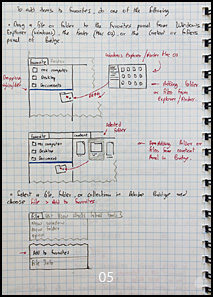 To add items to Favorites, do one of the following
• Drag a file or folder to the Favorites panel from Windows
Explorer (windows), the finder (Mac OS), or the Content or Folders
panel of Bridge.
Windows Explorer / Finder Mac OS
Favorite Folder
My Computer
Desktop
Documents
Dragging
Drag
folder
or files from
Explorer / Finder
Nested
folder
Favorite
Content
My Computer
Desktop
Documents
folder or
files from content
panel in Bridge.
• Select a file, folder, or collection in Adobe Bridge and
choose File > Add to Favorites.
File Edit View Stacks Label Tools
Add to Favorites
File Info
05